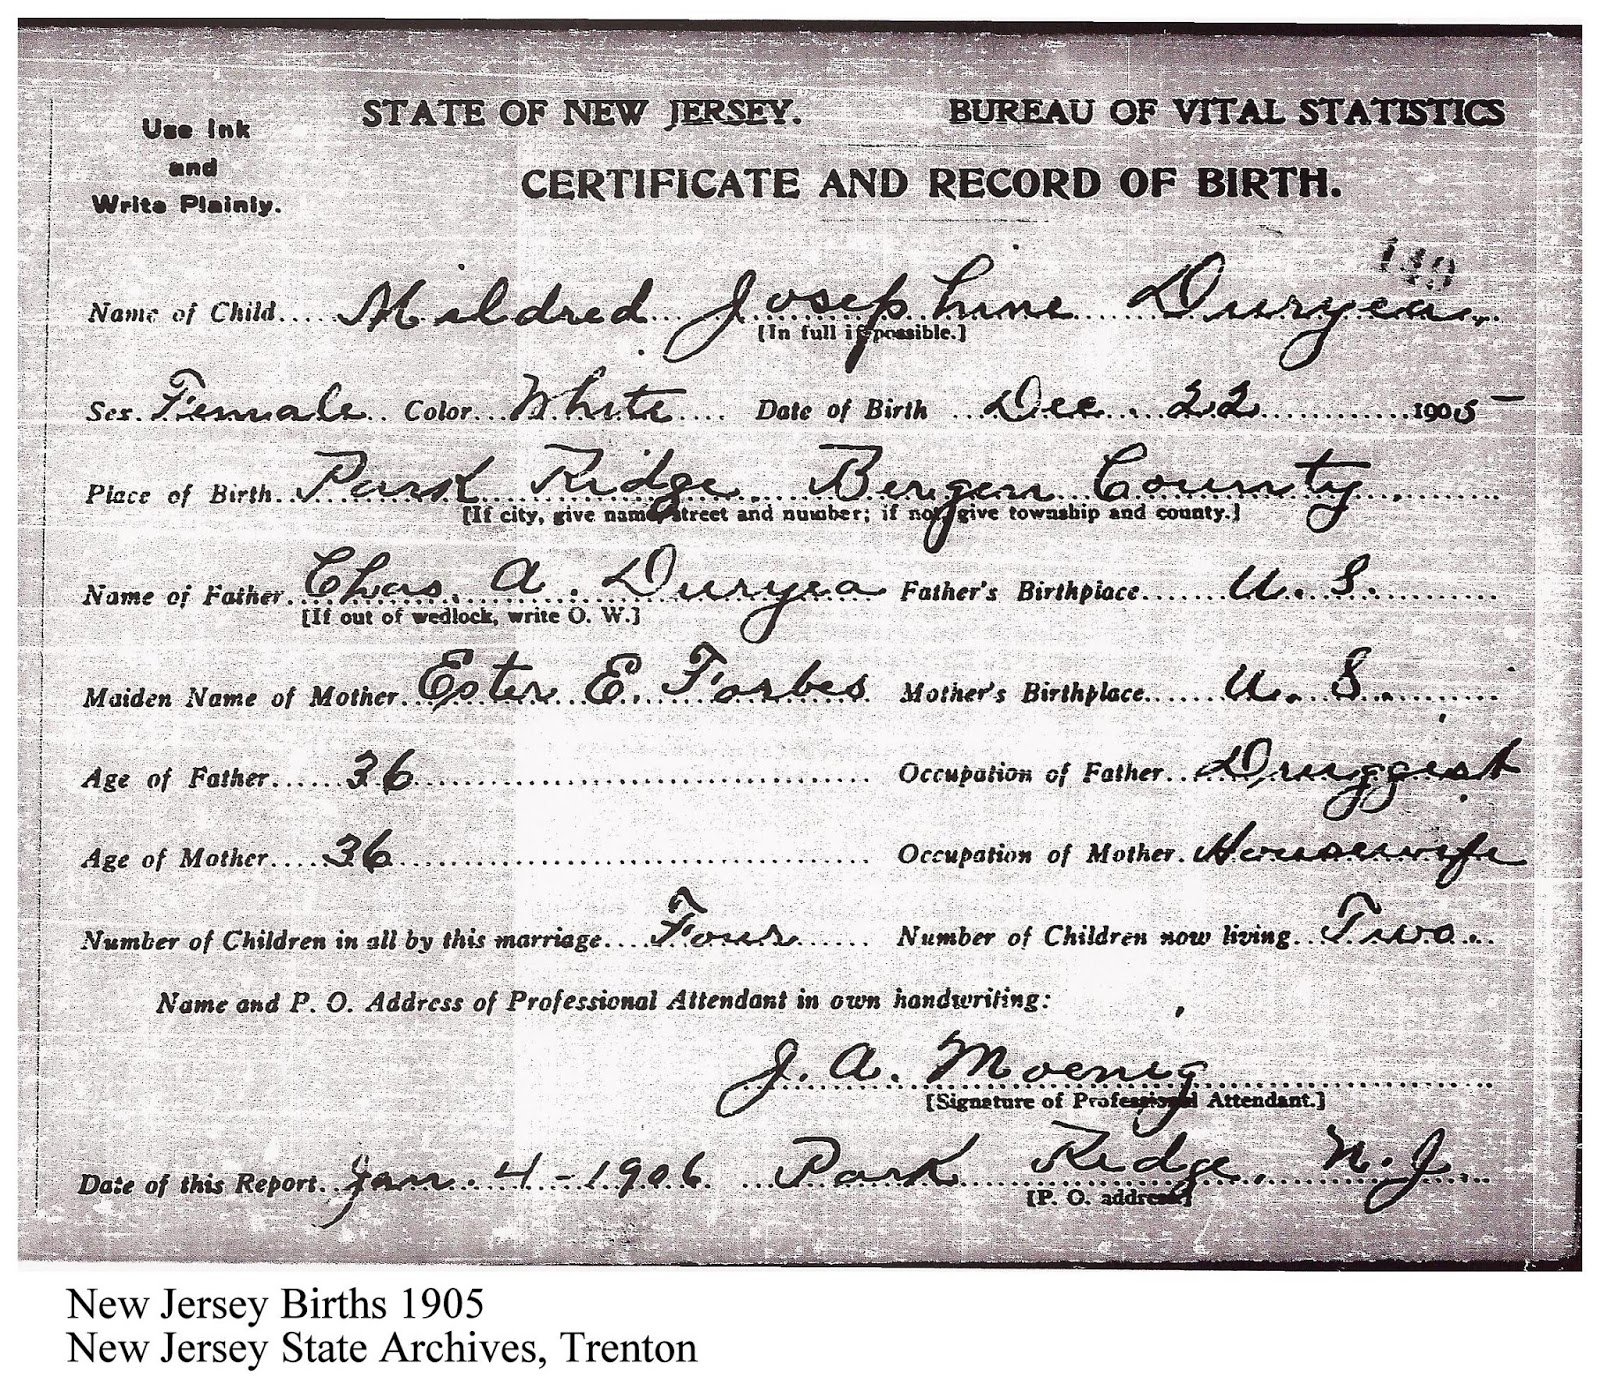 STATE OF NEW JERSEY. BUREAU OF VITAL STATISTICS
Use Ink
and
Write Plainly.
CERTIFICATE AND RECORD OF BIRTH.
Name of Child.... Mildred Josephine Duryea
[In full if possible.]
Sex. Female Color... White Date of Birth Dec. 22 1905
Place of Birth.. Park Ridge. Bergen County
[If city, give name, street and number; if not, give township and county.]
Name of Father. Chas. A. Duryea Father's Birthplace U. S.
[If out of wedlock, write O. W.]
Maiden Name of Mother. Ester E. Forbes Mother's Birthplace U. S.
Age of Father 36 Occupation of Father. Druggist
Age of Mother 36 Occupation of Mother. Housewife
Number of Children in all by this marriage Four Number of Children now living Two
Name and P. O. Address of Professional Attendant in own handwriting:
J. A. Moenig
[Signature of Professional Attendant.]
Date of this Report. Jan. 4 - 1906 Park Ridge. N. J.
[P. O. address]
New Jersey Births 1905
New Jersey State Archives, Trenton